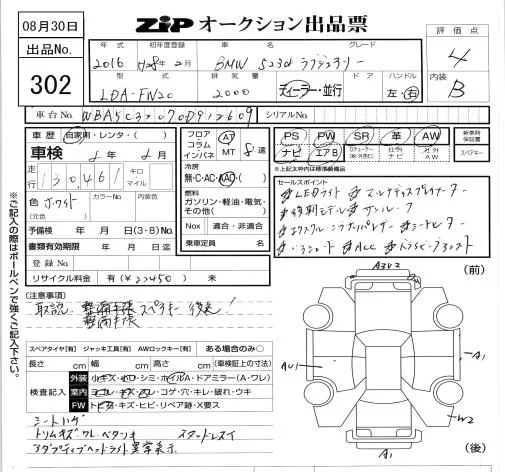 08月30日
ZIP オークション出品票
出品No.
302
評価点
4
内装
B
年式 初年度登録 車名 グレード
2016 H28年2月 BMW 523d ラグジュアリー
型式 排気量 ドア ハンドル
LDA-FW20 2000 ディーラー・並行 左・右
車台No. シリアルNo.
車歴 自家用・レンタ・( )
車検 年 月
走行 130,461 キロ マイル
色 カラーNo. 内装色
(元色)
予備検 年 月 日(3・8)No.
書類有効期限 年 月 日迄
登録No
リサイクル料金 有(¥22450)無
フロア コラム インパネ
AT MT 8速
冷房
無・C・AC・AAC・( )
燃料
ガソリン・軽油・電気・その他( )
Nox 適合・非適合
乗車定員 名
PS PW SR 革 AW
ナビ エアB 社外ナビ 社外AW
新車時保証書
スペアキー
※上記太枠内は標準装備品
セールスポイント
#LEDライト
#ACC
(注意事項)
取説 整備手帳 スペアキー 後送!
整備手帳
スペアタイヤ[有] ジャッキ工具[有] AWロックキー[有] ある場合のみ○
長さ cm 幅 cm 高さ cm (車検証上の寸法)
検査記入
外装 小キズ・小ワレ・シミ・ホイルA・ドアミラー(A・ワレ)
室内 ヨゴレ・キズ・スレ・コゲ・穴・キレ・破れ・ウキ
FW トビ石・キズ・ヒビ・リペア跡・X要ス
シートハゲ
トリムキズ・ワレ・ベタツキ
アダプティブヘッドライト異常表示
(前)
AU1
A1
W2
A1
(後)
※ご記入の際はボールペンで強くご記入下さい。